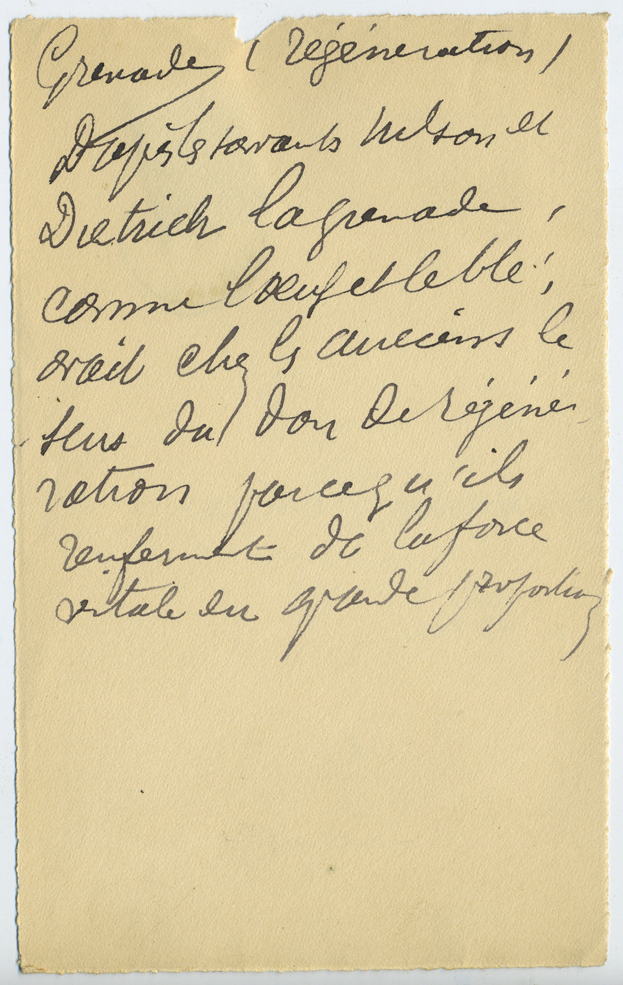 Grenade (régénération)
D'après les savants Nilson et
Dietrich la grenade,
comme l'œuf et le blé,
avait chez les anciens le
sens du don de régéné-
ration parcequ'ils
renferment de la force
vitale en grande proportion